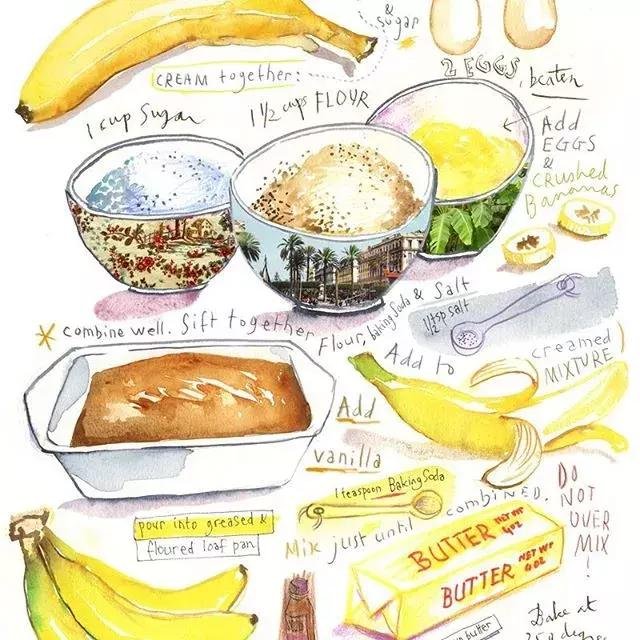 & Sugar
2 EGGS, beaten
CREAM together:
1 cup Sugar
1 1/2 cups FLOUR
Add
EGGS
&
CRUSHED
Bananas
* combine well. Sift together Flour, baking Soda & Salt
1/2 tsp salt
Add to
creamed
MIXTURE
Add
vanilla
1 teaspoon Baking Soda
pour into greased &
floured loaf pan
Mix just until combined.
DO
NOT
OVER
MIX
!
BUTTER NET WT 4 OZ
BUTTER NET WT 4 OZ
butter
Bake at